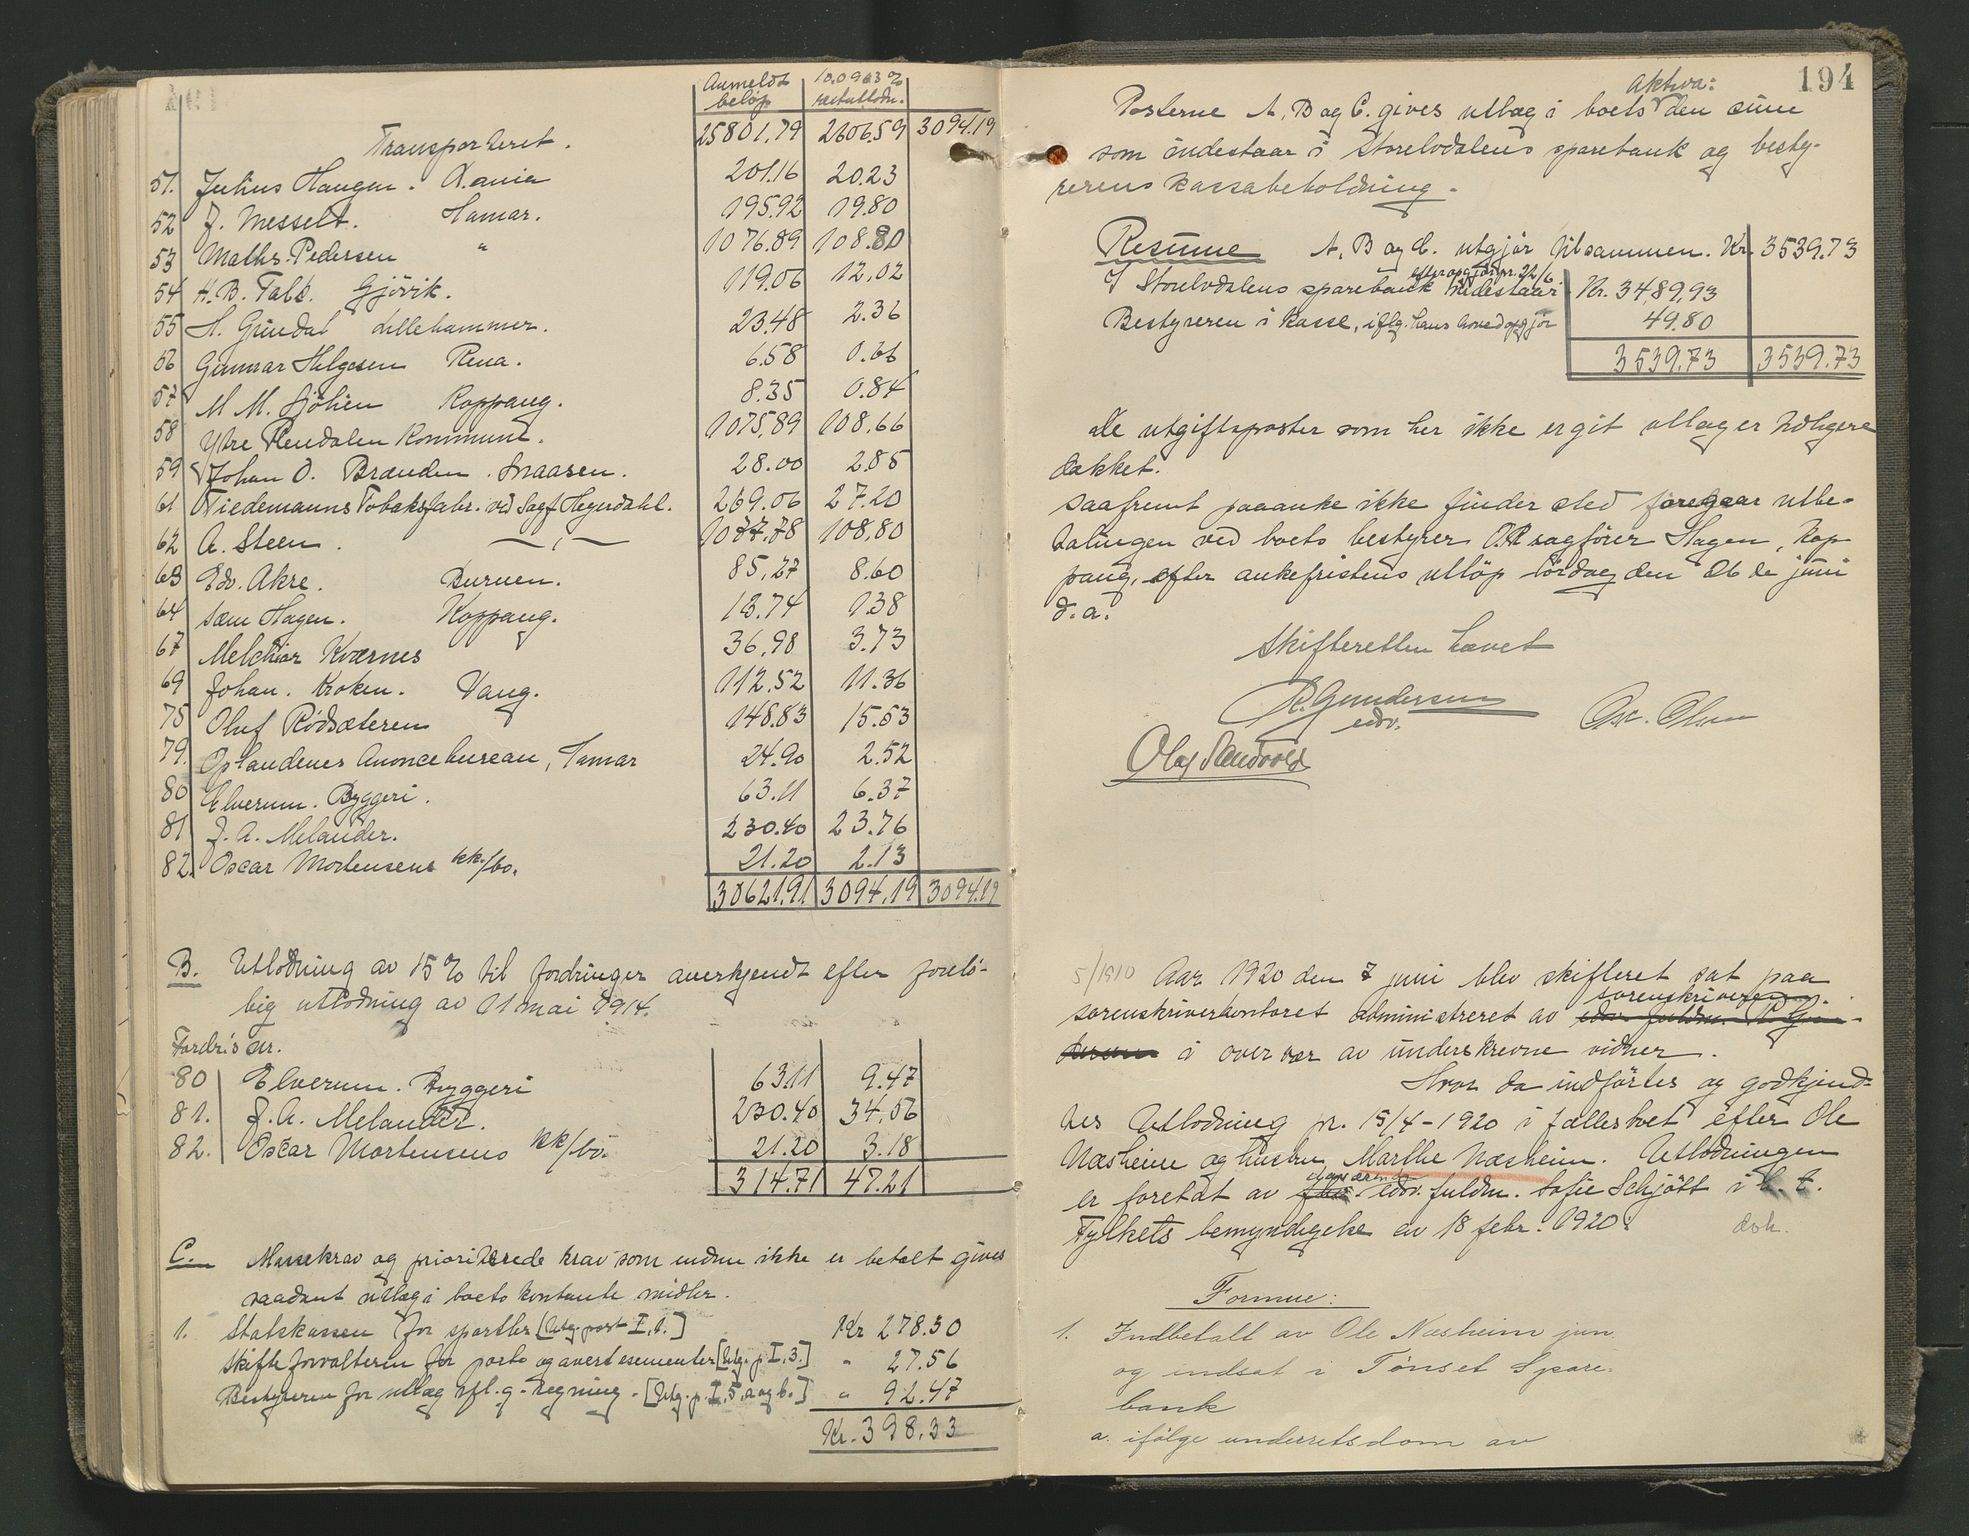 Anmeldt 10.0963 %
beløp restutlodn.
Transporteret. 25801.79 2606.59 3094.19
51. Julius Haugen. X.ania 201.16 20.23
52 J. Messelt. Hamar. 195.92 19.80
53 Maths. Pedersen " 1076.89 108.80
54 H. B. Falk. Gjøvik. 119.06 12.02
55 H. Grindal Lillehammer. 23.48 2.36
56 Gunnar Helgesen Rena. 6.58 0.66
57 M. M. Koppang. 8.35 0.84
58 Ytre Rendalen Kommune. 1075.89 108.66
59 Johan O. Brænden. Snaasen. 28.00 2.85
61 Tiedemanns Tobaksfabr. ved Sagf. Heyerdahl. 269.06 27.20
62 A. Steen. — " — 1077.78 108.80
63 Edv. Akre. 85.27 8.60
64 Sam Hagen. Koppang. 13.74 1.38
67 Melchior Kværnes 36.98 3.73
69 Johan. Kroken. Vang. 112.52 11.36
75 Oluf Rødsæteren 148.83 15.53
79. Oplandenes Anoncebureau, Hamar 24.90 2.52
80 Elverum. Byggeri. 63.11 6.37
81 J. A. Melander. 230.40 23.76
82. Oscar Mortensens kk./bo. 21.20 2.13
30621.91 3094.19 3094.19
B. Utlodning av 15 % til fordringer anerkjendt efter forelø-
big utlodning av 11 mai 1914.
Fordr.s nr.
80 Elverum. Byggeri 63.11 9.47
81. J. A. Melander. 230.40 34.56
82. Oscar Mortensens kk/bo. 21.20 3.18
314.71 47.21
C. Massekrav og prioriterede krav som endnu ikke er betalt gives
saadant utlæg i boets kontante midler.
1. Statskassen for sportler [Utg. post I, 1.] Kr 278.30
Skifteforvalteren for porto og avertesementer [Utg. p. I, 3.] " 27.56
Bestyreren for utlæg ifl.g. regning. [Utg. p. I, 5, a og b.] " 92.47
Kr. 398.33
194
Aktiva:
Posterne A, B og C. gives utlæg i boets den sum
som indestaar i Storelvdalens sparebank og besty-
rerens kassabeholdning.
Resume A, B og C. utgjør tilsammen. Kr. 3539.73
efter opgjør pr. 22/6.
I Storelvdalens sparebank indestaar Kr. 3489.93
Bestyreren i kasse, iflg. hans hovedopgjør 49.80
3539.73 3539.73
De utgiftsposter som her ikke er git utlæg er tidligere
dækket.
Saafremt paaanke ikke finder sted foregaar utbe-
talingen ved boets bestyrer O.R sagfører Hagen, Kop
pang, efter ankefristens utløp lördag den 26 de juni
d. a.
Skifteretten hævet
R. Gundersen
edsv.
Osc. Olsen
Olaf
5/1910 Aar 1920 den 7 juni blev skifteret sat paa
sorenskriveren
sorenskriverkontoret administreret av edsv. fuldm. R. Gun-
dersen i overvær av underskrevne vidner.
Hvor da indførtes og godkjend-
tes Utlodning pr. 15/4-1920 i fællesboet efter Ole
Næsheim og hustru Marthe Næsheim. Utlodningen
daværende
er foretat av edsv. fuldm. Sofie Schjött i h. t.
Fylkets bemyndigelse av 18 febr. 1920. dok.
Formue:
1. Indbetalt av Ole Næsheim jun.
og indsat i Tønset Spare-
bank
a. ifølge underretsdom av